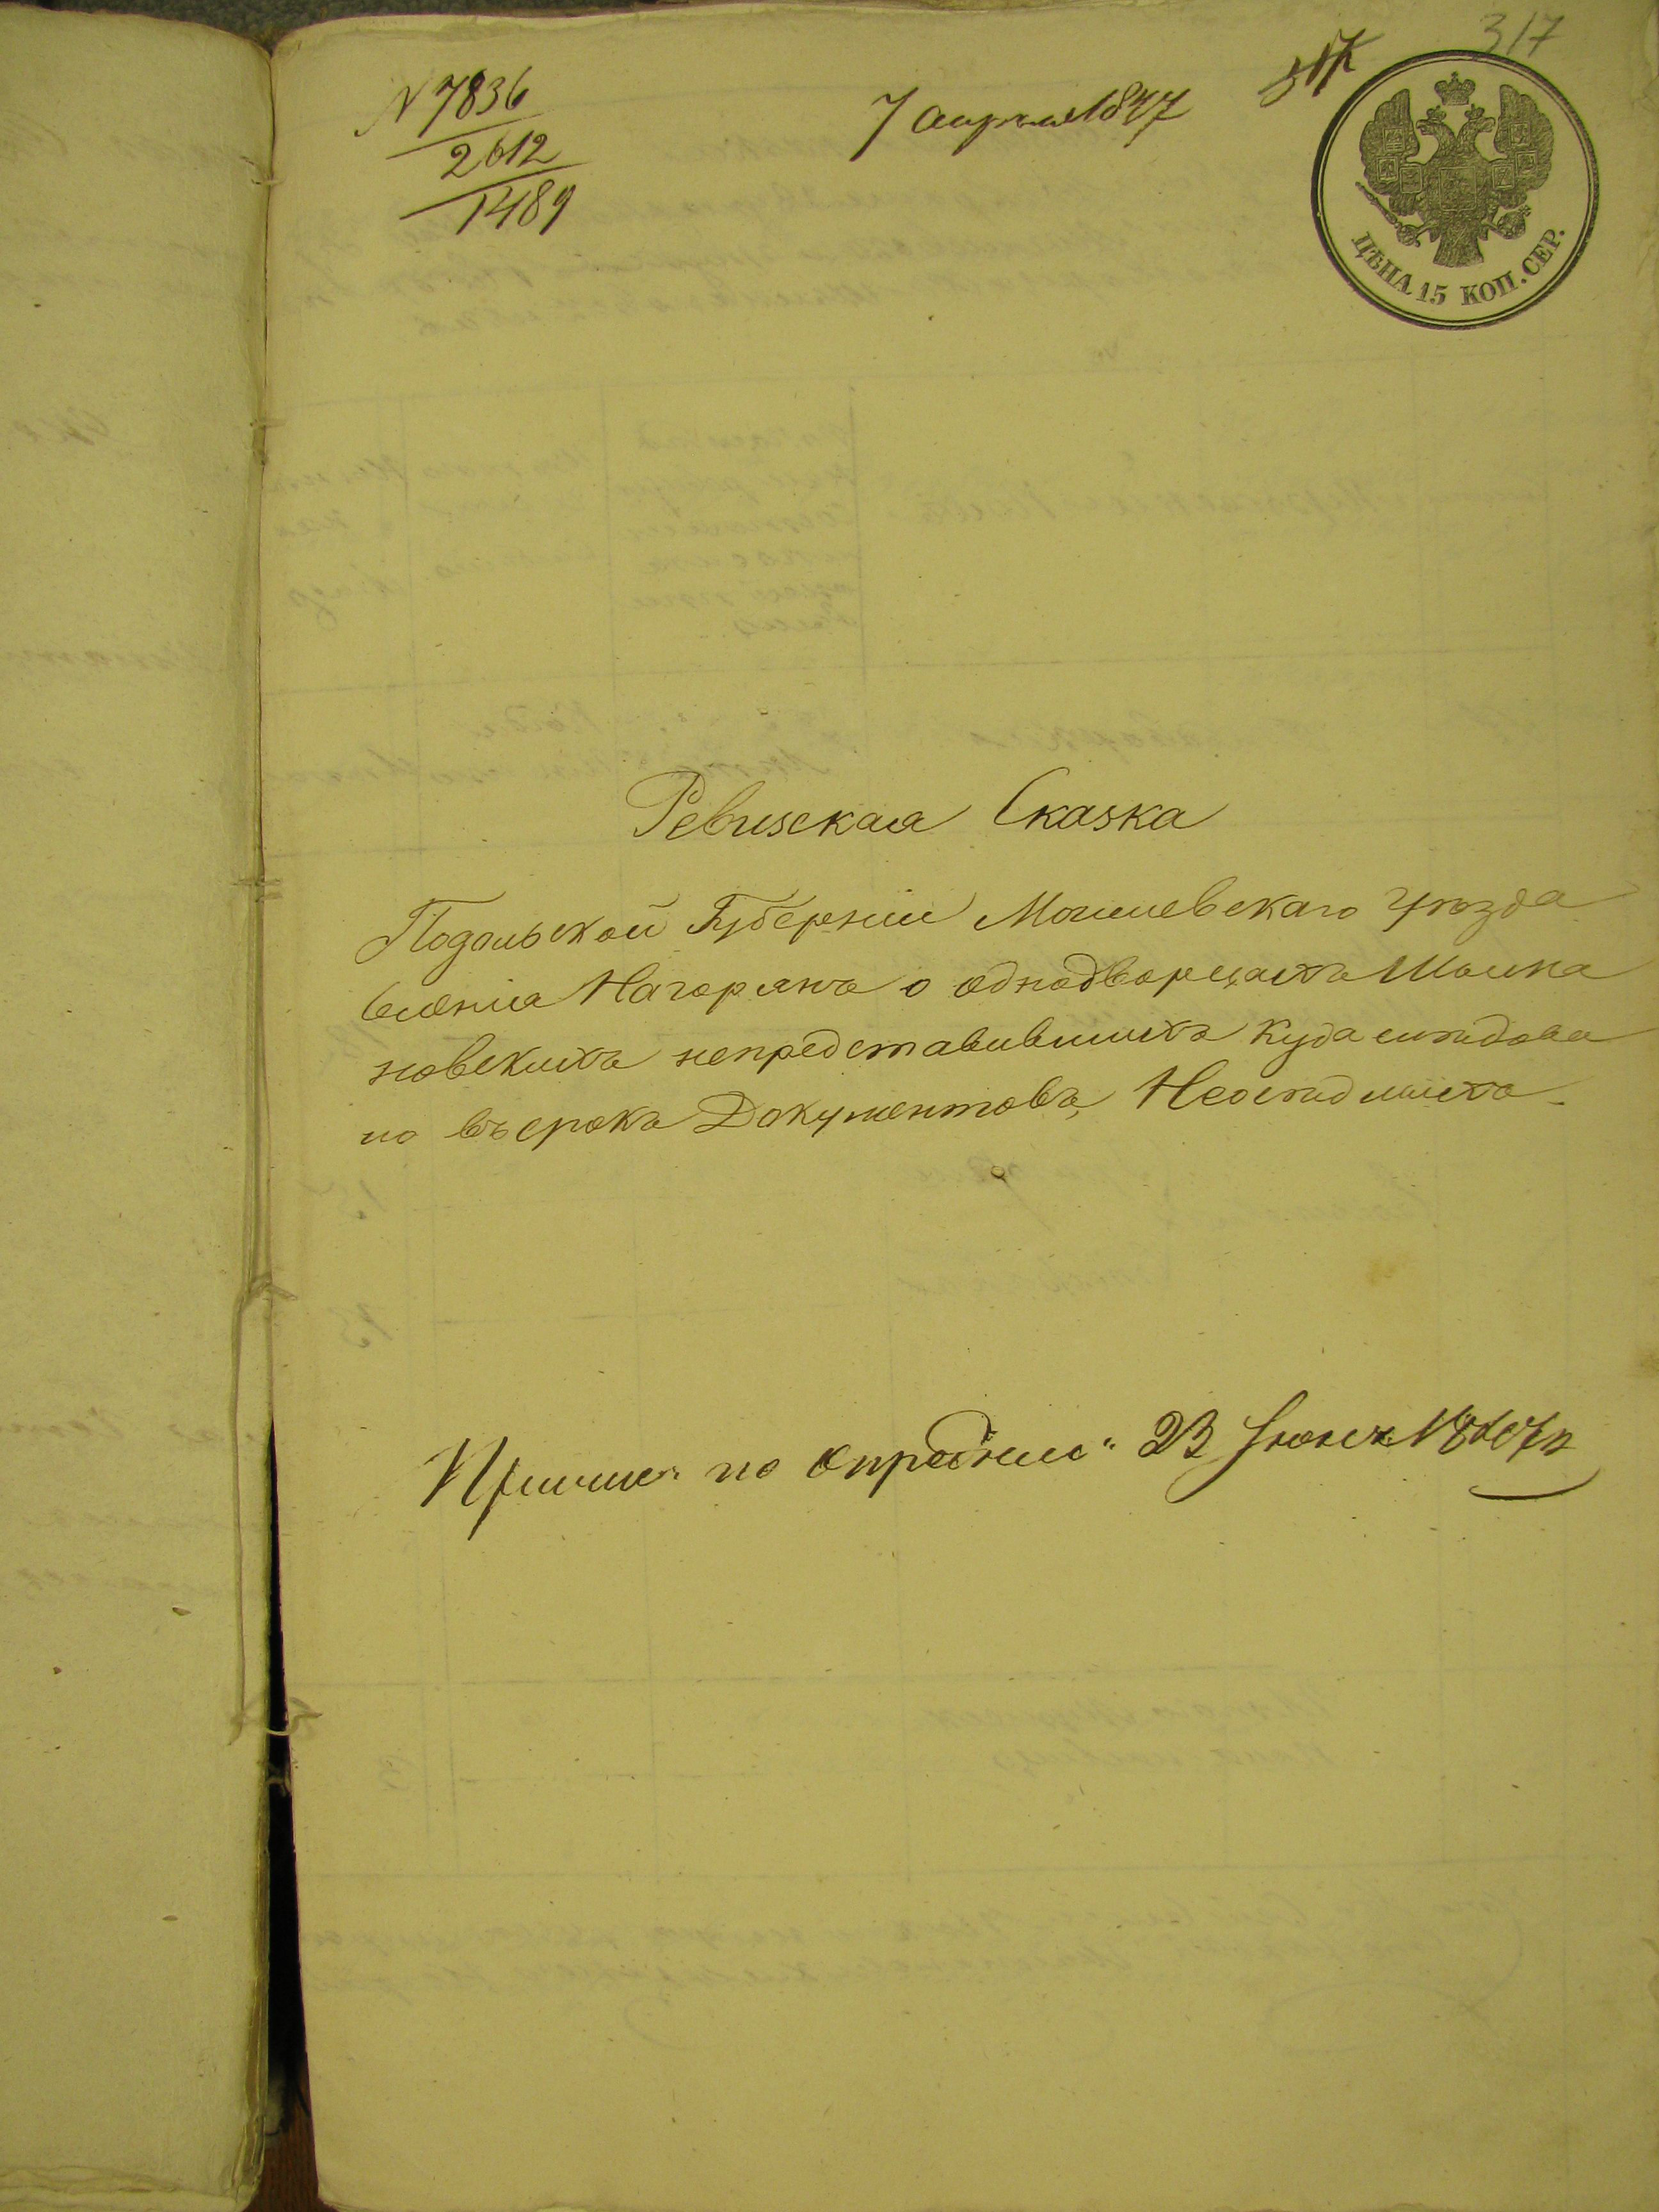 317
N 7836
2612
1489
7 апреля 1847
317
ЦѢНА 15 КОП. СЕР.
Ревизская Сказка
Подольской Губерніи Могилевскаго Уѣзда
селенія Нагорянъ о однодворцахъ Шыма
новскихъ непредставившихъ куда слѣдова
ло въ срокъ Документовъ, Неосѣдлыхъ
по 23 Іюня 1847 г